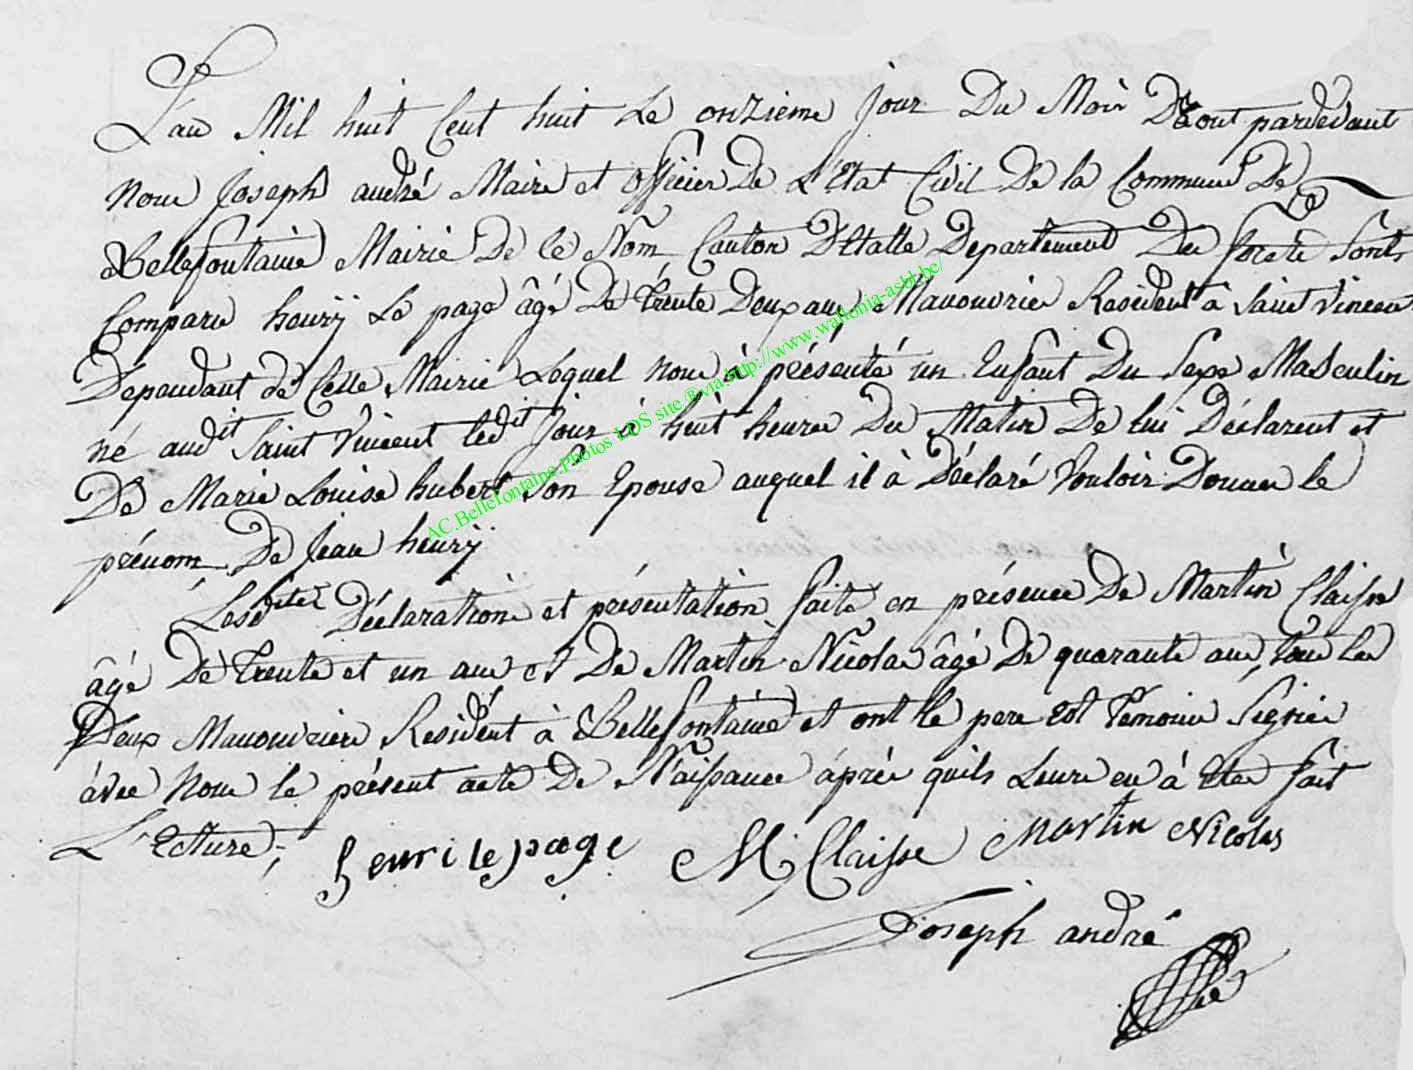 L'an Mil huit Cent huit Le onzieme jour Du Mois D'aout pardevant
Nous Joseph andré Maire et officier De L'Etat Civil De la Commune De
Bellefontaine Mairie De ce Nom Canton D'Etalle Departement Des forets sont
Comparu henry Le page âgé De trente Deux ans, Manouvrier Resident à saint vincent
Dependant de Cette Mairie Lequel nous à présenté un Enfant Du sexe Masculin
né audit saint Vincent ledit jour à huit heure Du Matin De lui Déclarent et
De Marie Louise hubert son Epouse auquel il à Déclaré Vouloir Donner le
prénom De Jean henry
Lesdites Déclaration et présentation faite en présence De Martin Claisse
âgé De trente et un ans et De Martin Nicolas âgé De quarante ans, tous les
Deux Manouvriers Resident à Bellefontaine et ont le pere est temoins signés
àvec Nous le présent acte De Naissance áprés quils Leurs en à Eter fait
L'Ecture,
henri le page M, Claisse Martin Nicolas
Joseph andré
AC.Bellefontaine.Photos LDS site ®via.http://www.wallonia-asbl.be/